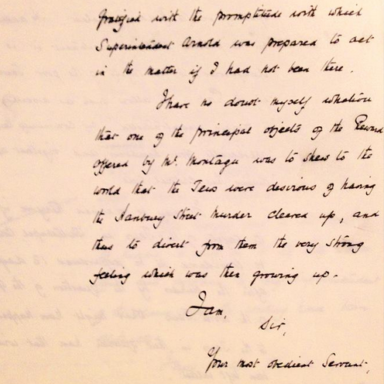 gratified with the promptitude with which
Superintendent Arnold was prepared to act
in the matter if I had not been there.
I have no doubt myself whatever
that one of the principal objects of the Reward
offered by Mr. Montagu was to shew to the
world that the Jews were desirous of having
the Hanbury Street Murder cleared up, and
thus to divert from them the very strong
feeling which was then growing up.
I am,
Sir,
Your most obedient Servant,